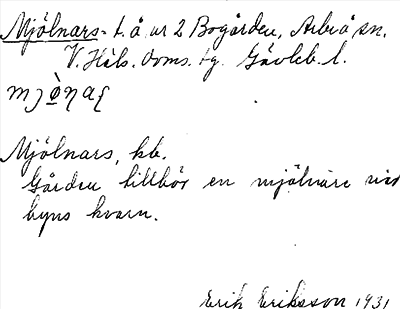 Mjölnars- t. å nr 2 Bogården, Arbrå sn.
V. Häls. doms. tg. Gävleb. l.
Mjölnars, hb.
Gården tillhör en mjölnare vid
byns kvarn.
Erik Eriksson 1931